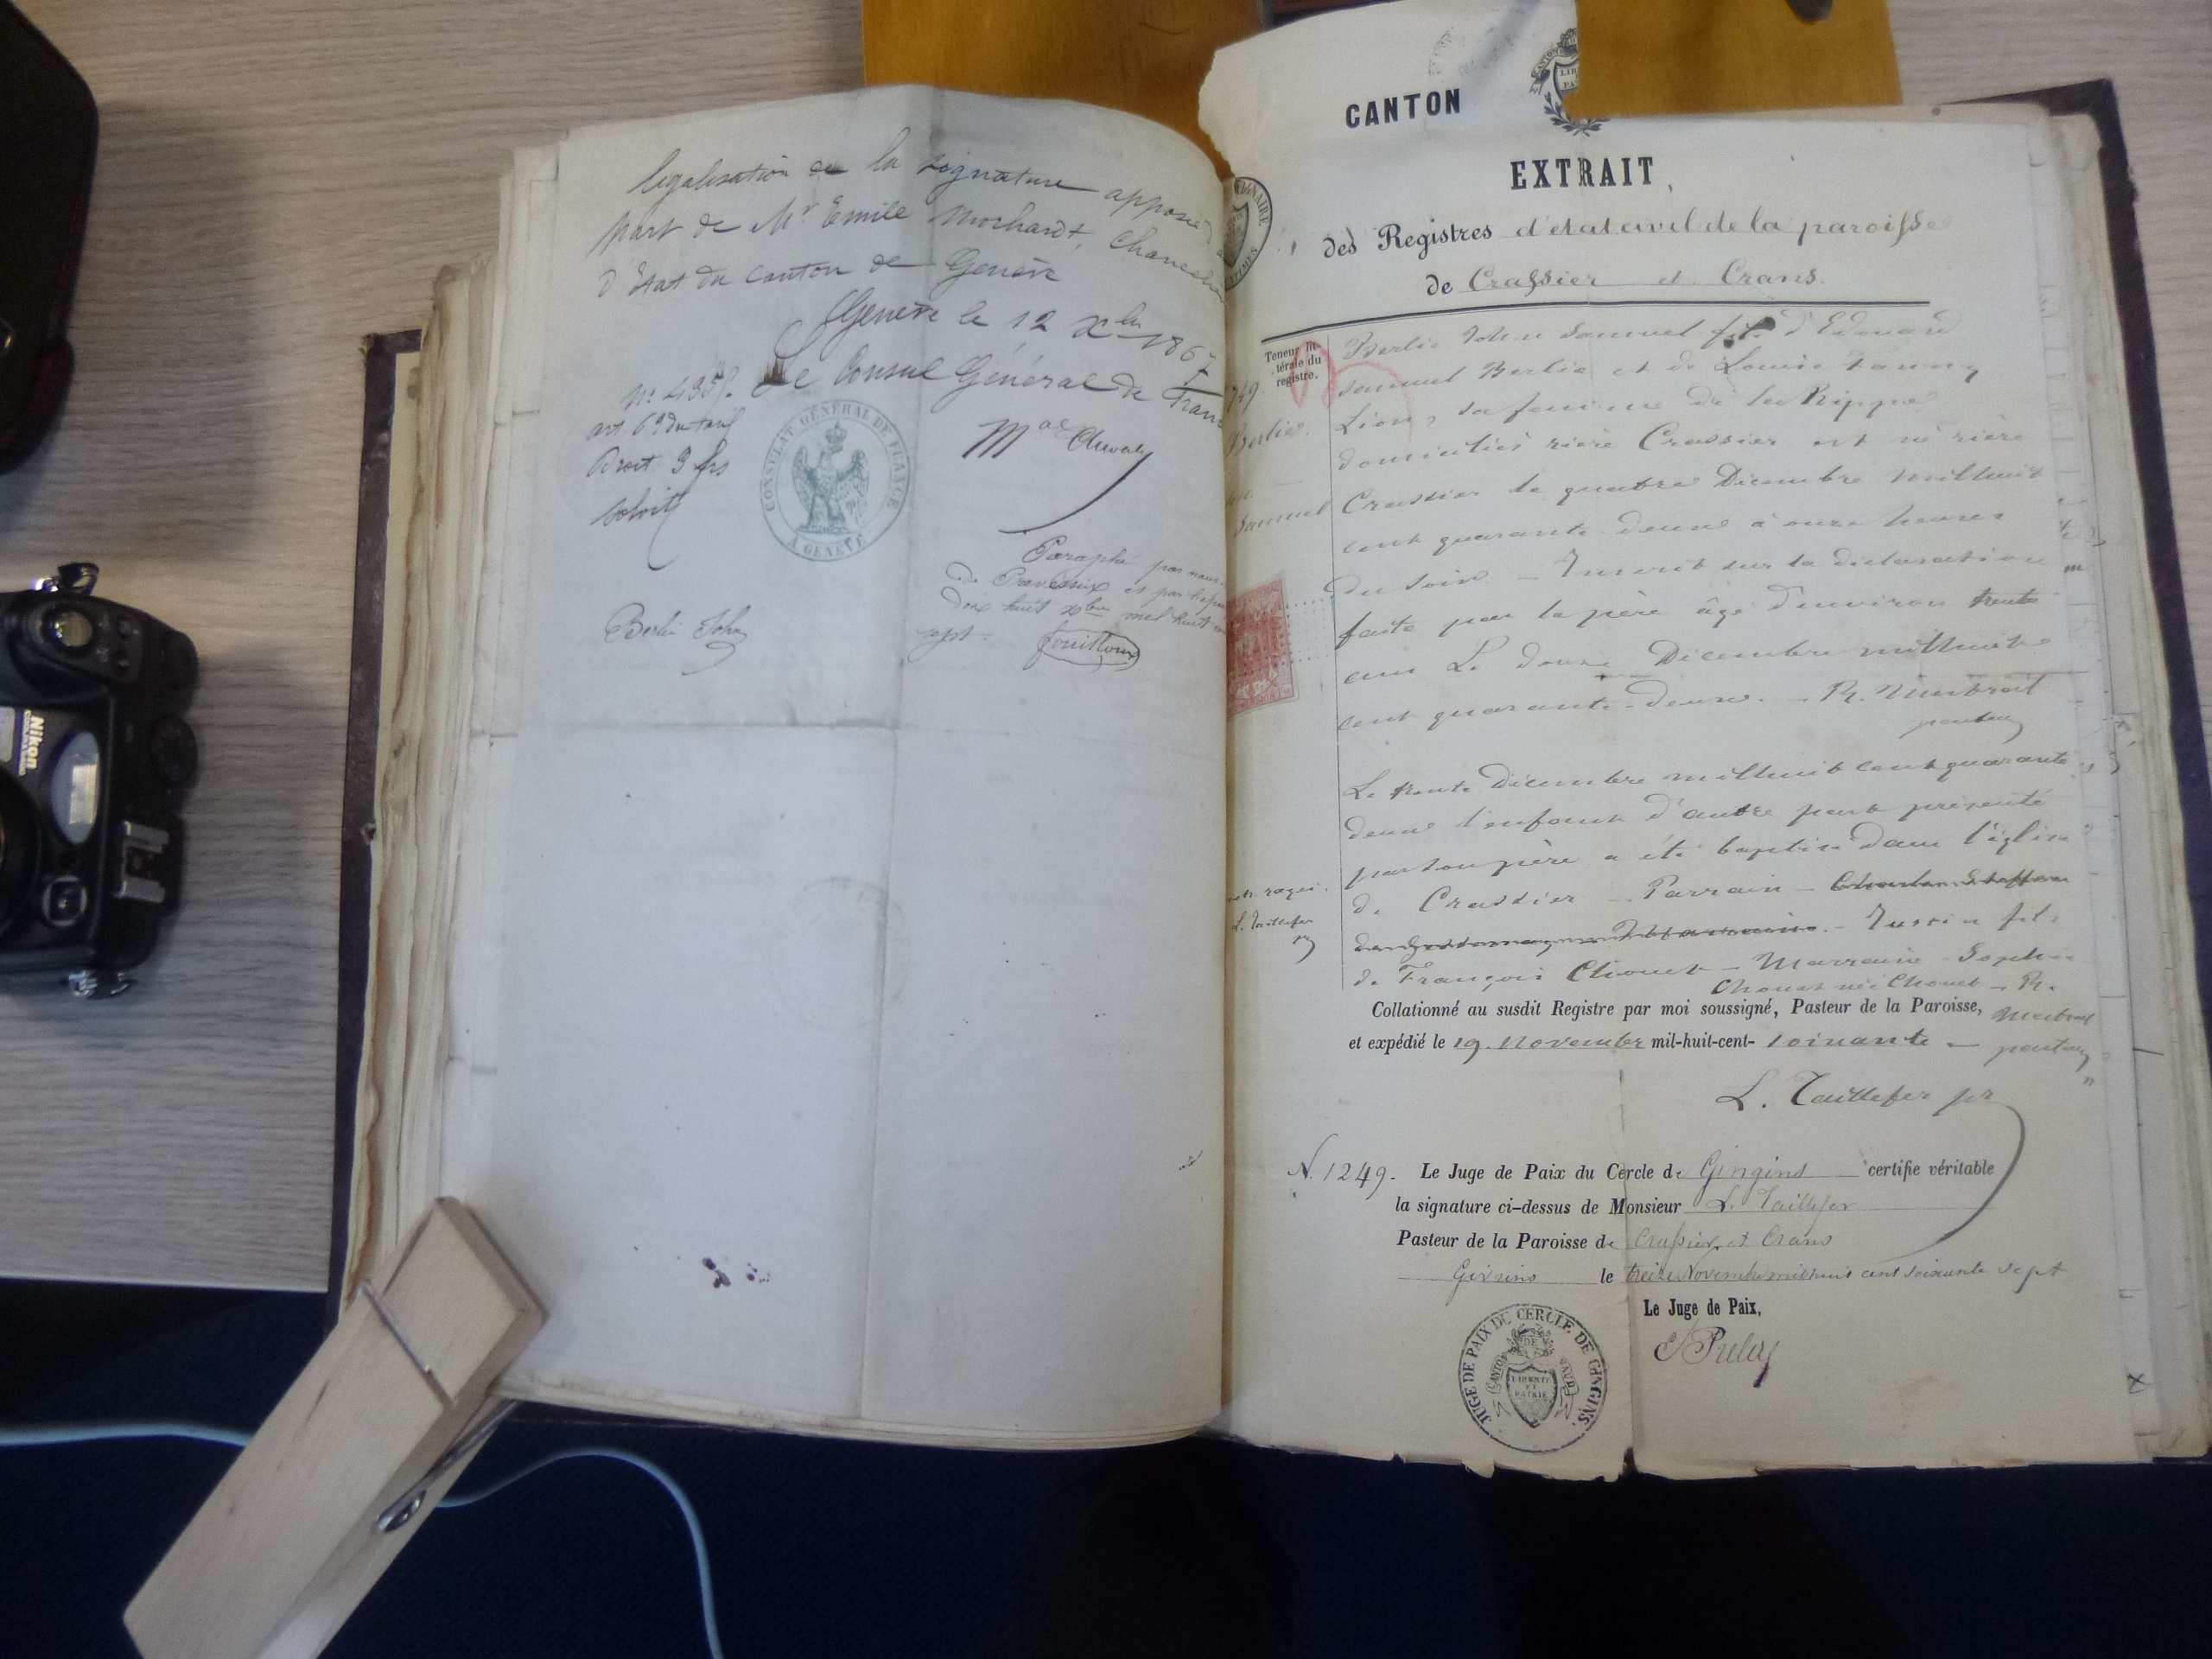 légalisation de la signature apposée d'a
part de Mr Emile Morhardt, Chancelier
d'Etat du canton de Genève
Genève le 12 Xbre 1867
Le Consul Général de Fran
No 4357.
art. 69 du tarif
Droit 3 frs
Mac Cluvaly
CONSULAT GÉNÉRAL DE FRANCE
A GENÈVE
Paraphé par nous
de Pravessin et par
dix huit Xbre mil huit cen
sept.
Berlie John
CANTON
EXTRAIT
des Registres d'état civil de la paroisse
de Crassier et Crans.
Teneur lit-
térale du
registre.
749.
Berlie.
Samuel
Berlie John Samuel fils d'Edouard
Samuel Berlie et de Louise Fanny
Lion, sa femme de la Rippe
domiciliés rière Crassier est né rière
Crassier le quatre Décembre milhuit
cent quarante-deux à onze heures
du soir. – Inscrit sur la déclaration
faite par le père âgé d'environ trente
ans Le douze Décembre milhuit
cent quarante-deux. – R. Mestral
pasteur
Le trente Décembre milhuit cent quarante
deux l'enfant d'autre part présenté
par son père a été baptisé dans l'église
de Crassier – Parrain – Charles
– Jussin fils
de François Chouet – Marraine Sophie
Chouet née Chouet – R.
Mestral
pasteur
L. Taillefer
Collationné au susdit Registre par moi soussigné, Pasteur de la Paroisse,
et expédié le 19 Novembre mil-huit-cent- soixante –
L. Taillefer pr
N. 1249. Le Juge de Paix du Cercle de Gingins certifie véritable
la signature ci-dessus de Monsieur L. Taillefer
Pasteur de la Paroisse de Crassier et Crans
Givrins le treize Novembre mil huit cent soixante sept
Le Juge de Paix,
JUGE DE PAIX DU CERCLE DE GINGINS.
CANTON DE VAUD
LIBERTÉ
ET
PATRIE
Nikon